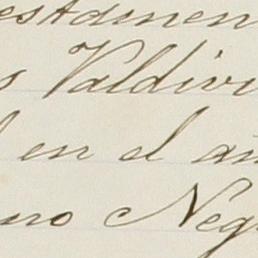 estamen
s Valdivi
l en el añ
uno Neg